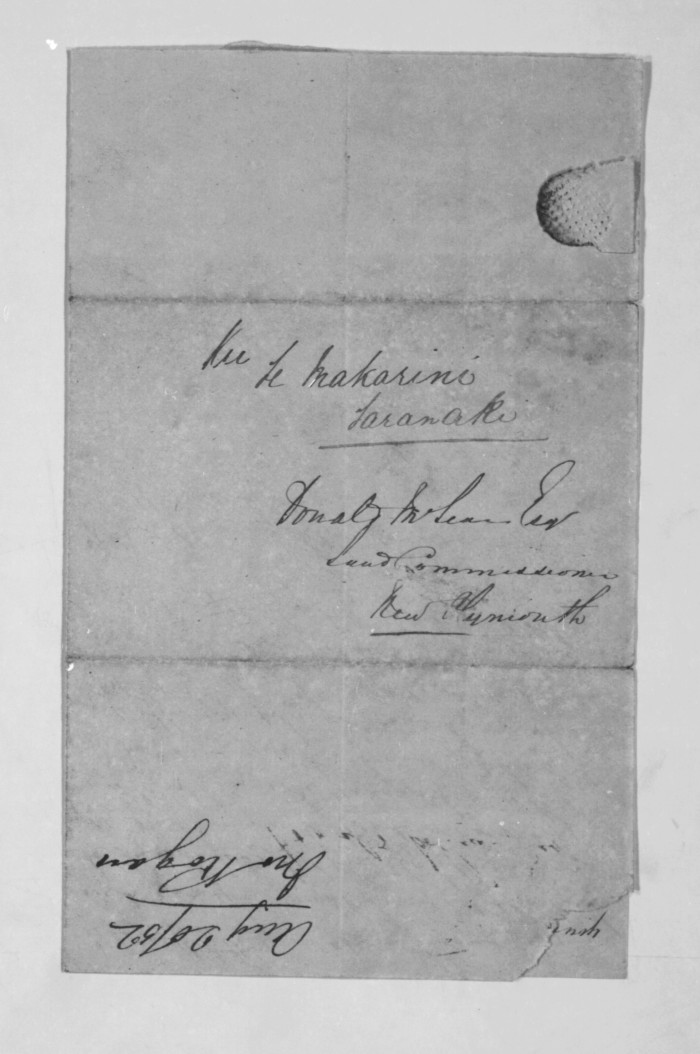 Kei Te Makarini
Taranaki
Donald McLean Esqr
Land Commissioner
New Plymouth
Jno Rogan
Aug 20/52